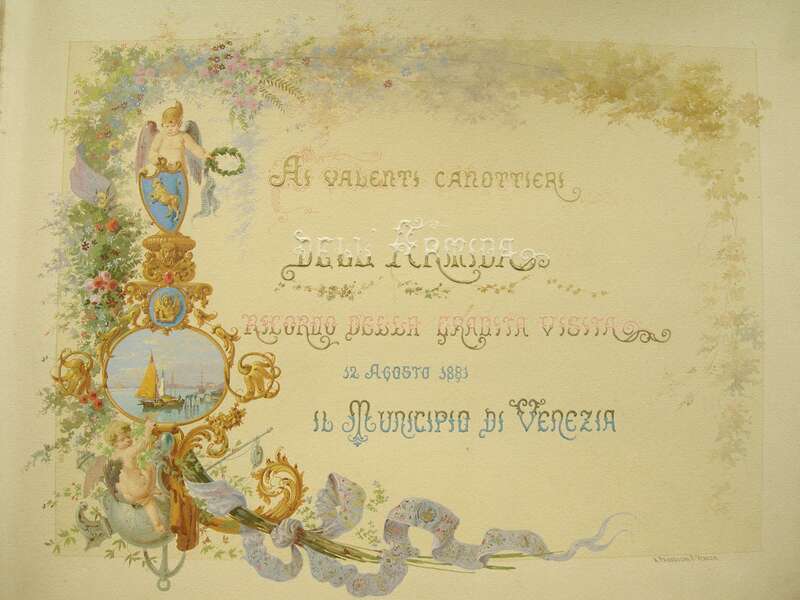 Ai valenti canottieri
dell'Armida
ricordo della gradita visita
12 Agosto 1881
il Municipio di Venezia